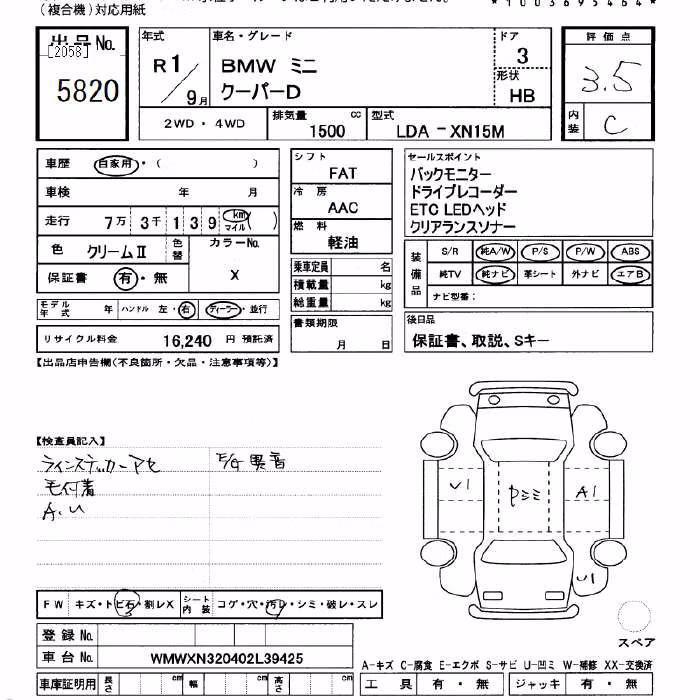 (複合機)対応用紙
出品No. [2058] 5820
年式 R1/9月
車名・グレード BMW ミニ クーパーD
ドア 3
形状 HB
評価点 3.5
内装 C
2WD・4WD 排気量 1500 cc 型式 LDA-XN15M
車歴 自家用・( )
車検 年 月
走行 7万 3千 1 3 9 km マイル ( )
色 クリームⅡ 色替 カラーNo. X
保証書 有・無
モデル年式 年 ハンドル 左・右 ディーラー・並行
リサイクル料金 16,240 円 預託済
シフト FAT
冷房 AAC
燃料 軽油
乗車定員 名
積載量 kg
総重量 kg
書類期限 月 日
セールスポイント
バックモニター
ドライブレコーダー
ETC LEDヘッド
クリアランスソナー
装備品 S/R 純A/W P/S P/W ABS
純TV 純ナビ 革シート 外ナビ エアB
ナビ型番:
後日品
保証書、取説、Sキー
【出品店申告欄(不良箇所・欠品・注意事項等)】
【検査員記入】
ラインステッカーアセ F/G 異音
毛付着
A・U
U1 Pミミ A1
U1
FW キズ・トビ石・割レX シート内装 コゲ・穴・汚レ・シミ・破レ・スレ
スペア
登録No.
車台No. WMWXN320402L39425
A-キズ C-腐食 E-エクボ S-サビ U-凹ミ W-補修 XX-交換済
車庫証明用 長さ cm 幅 cm 高さ cm 工具 有・無 ジャッキ 有・無